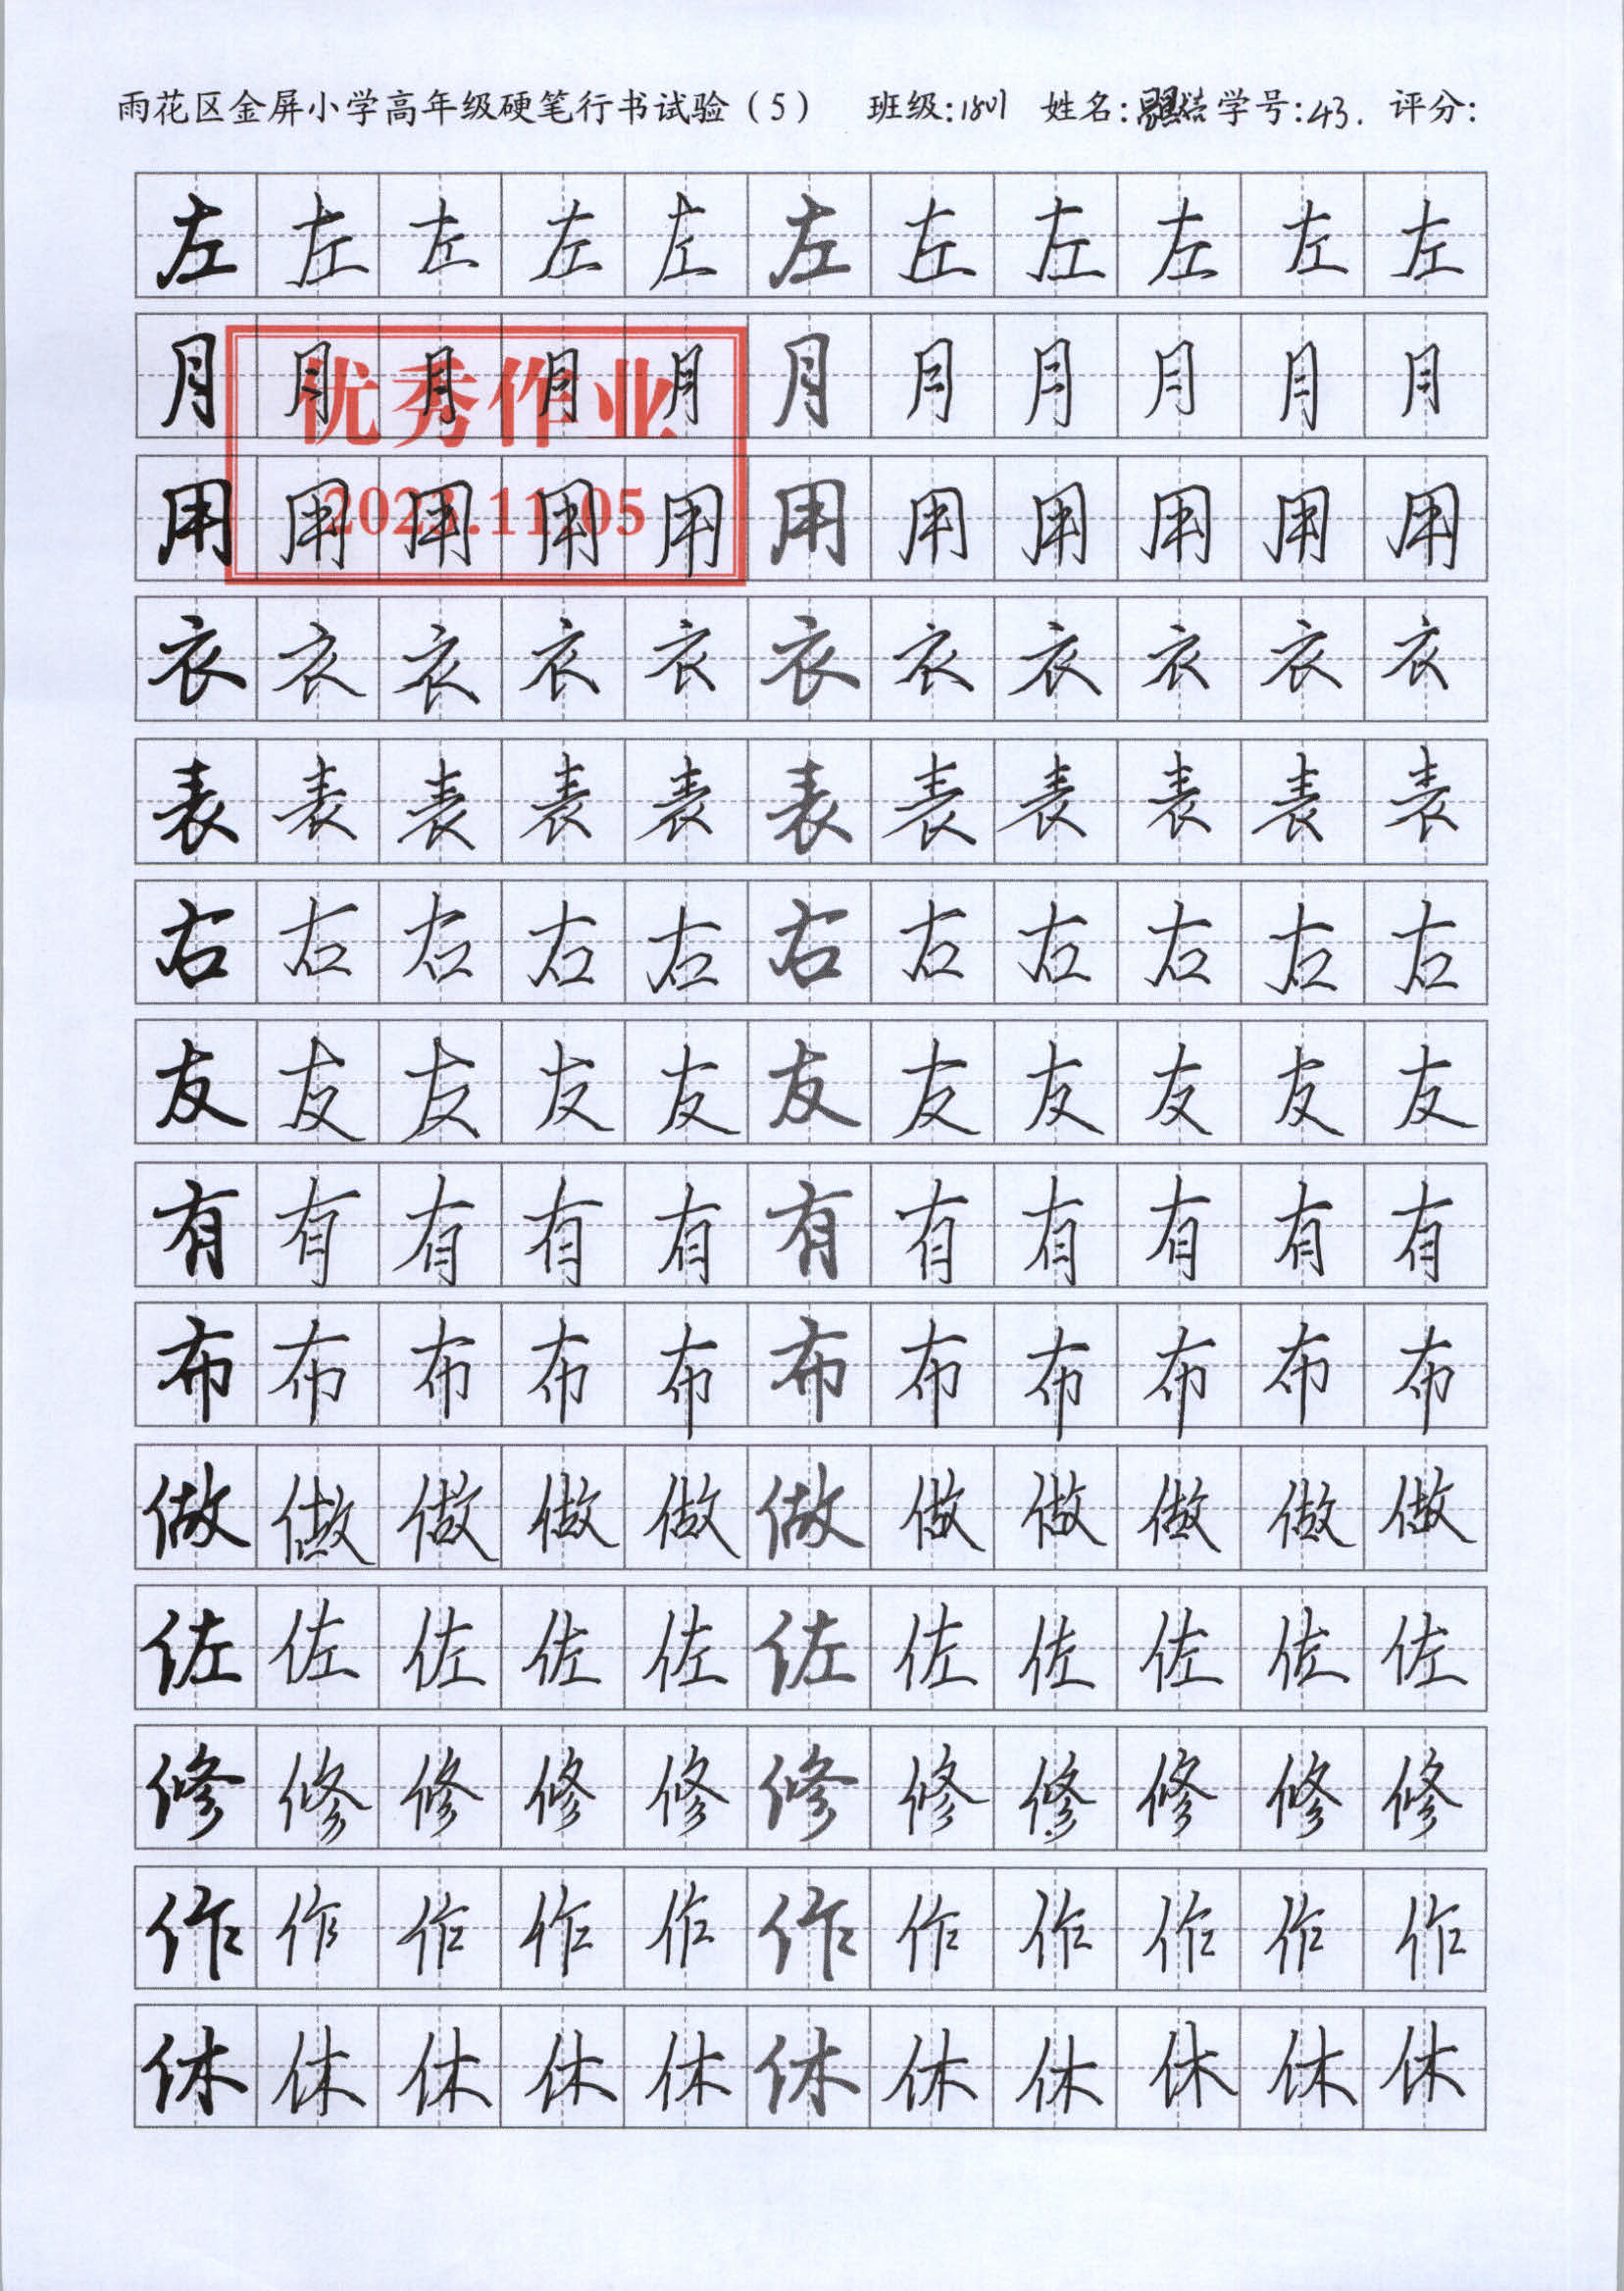 雨花区金屏小学高年级硬笔行书试验（5） 班级:1801 姓名: 学号:43. 评分:
左左左左左左左左左左左
月月月月月月月月月月月
优秀作业
用用用用用用用用用用用
衣衣衣衣衣衣衣衣衣衣衣
表表表表表表表表表表表
右右右右右右右右右右右
友友友友友友友友友友友
有有有有有有有有有有有
布布布布布布布布布布布
做做做做做做做做做做做
佐佐佐佐佐佐佐佐佐佐佐
修修修修修修修修修修修
作作作作作作作作作作作
休休休休休休休休休休休